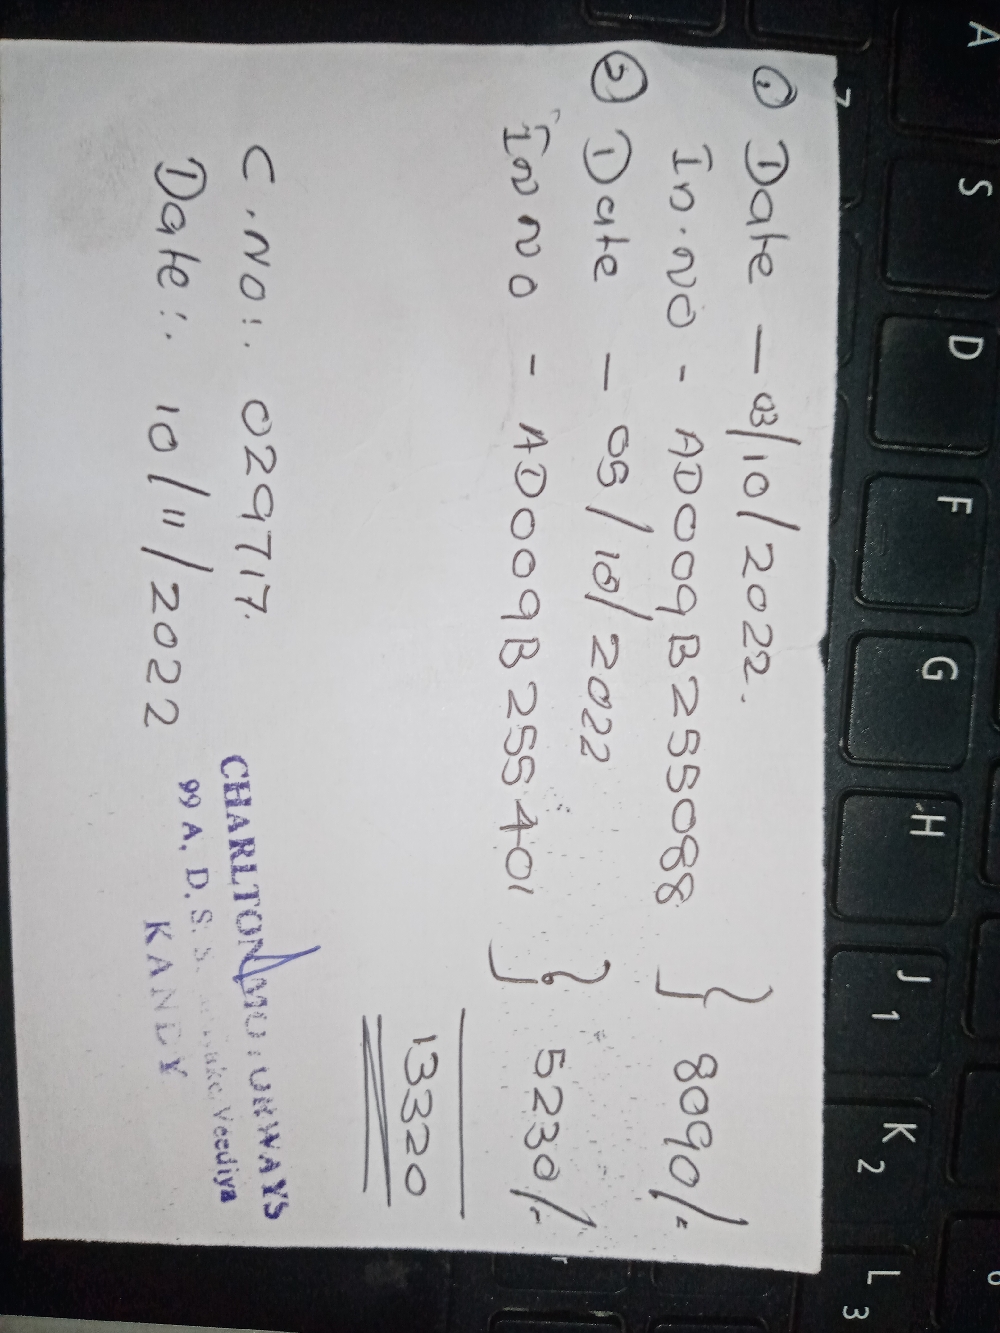 ① Date — 03/10/2022.
In.no - AD009B255088 } 8090/=
② Date — 05/10/2022
In no - AD009B255401 } 5230/-
13320
C.NO:. 029717.
Date:. 10/11/2022
CHARLTON MOTORWAYS
99 A, D. S. Veediya
KANDY
A
S
D
F
G
H
J 1
K 2
L 3
7